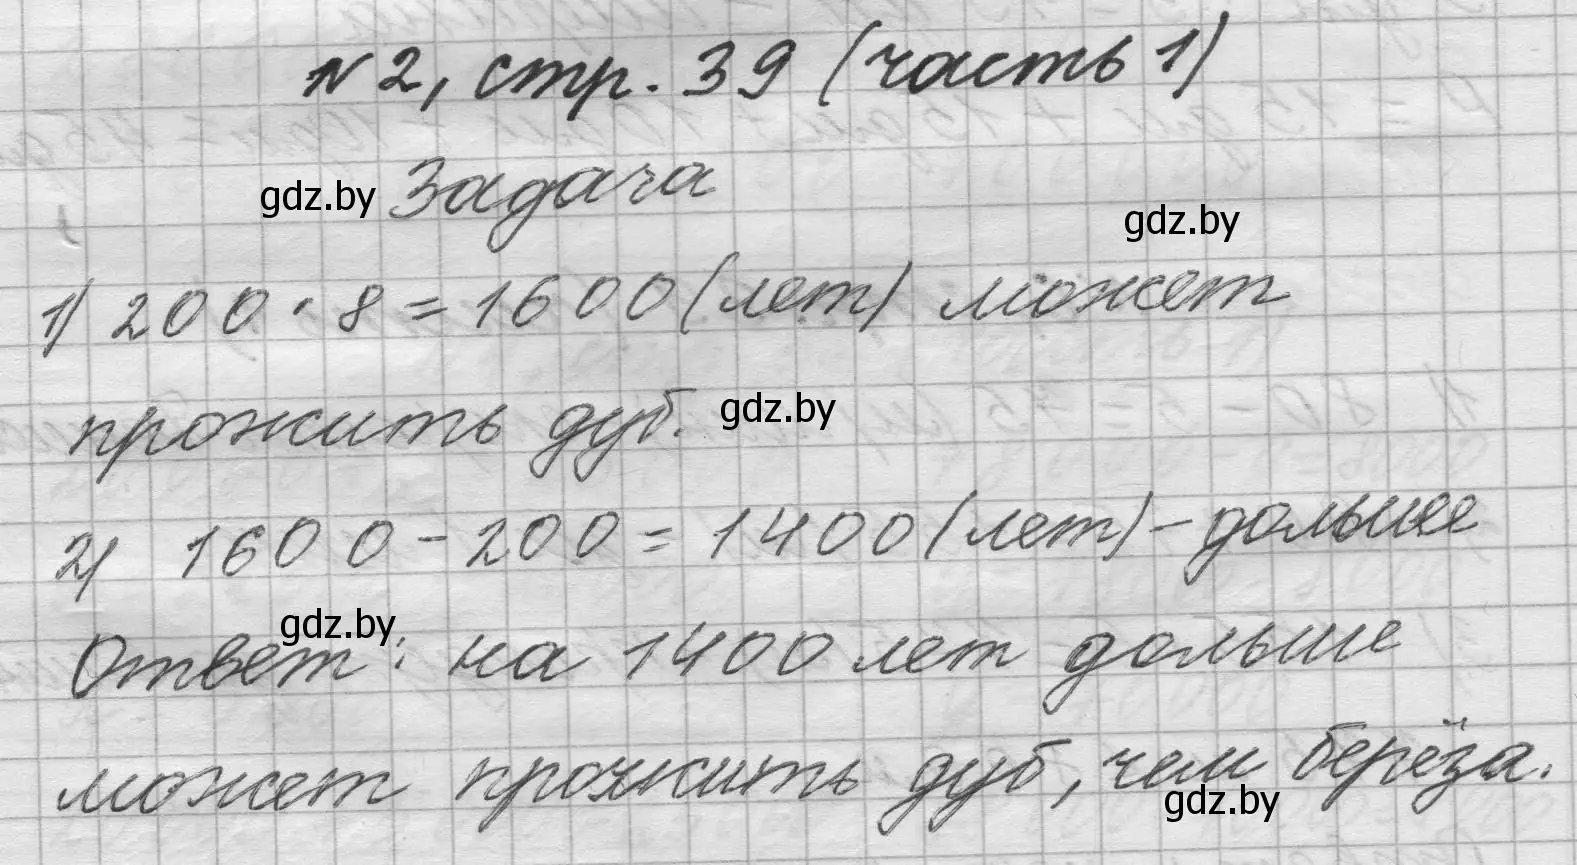 №2, стр. 39 (часть 1)
gdz.by Задача
gdz.by
1) 200 · 8 = 1600 (лет) может
прожить дуб. gdz.by
2) 1600 - 200 = 1400 (лет) - дольше
gdz.by
Ответ: на 1400 лет дольше
может прожить дуб, чем берёза.
gdz.by